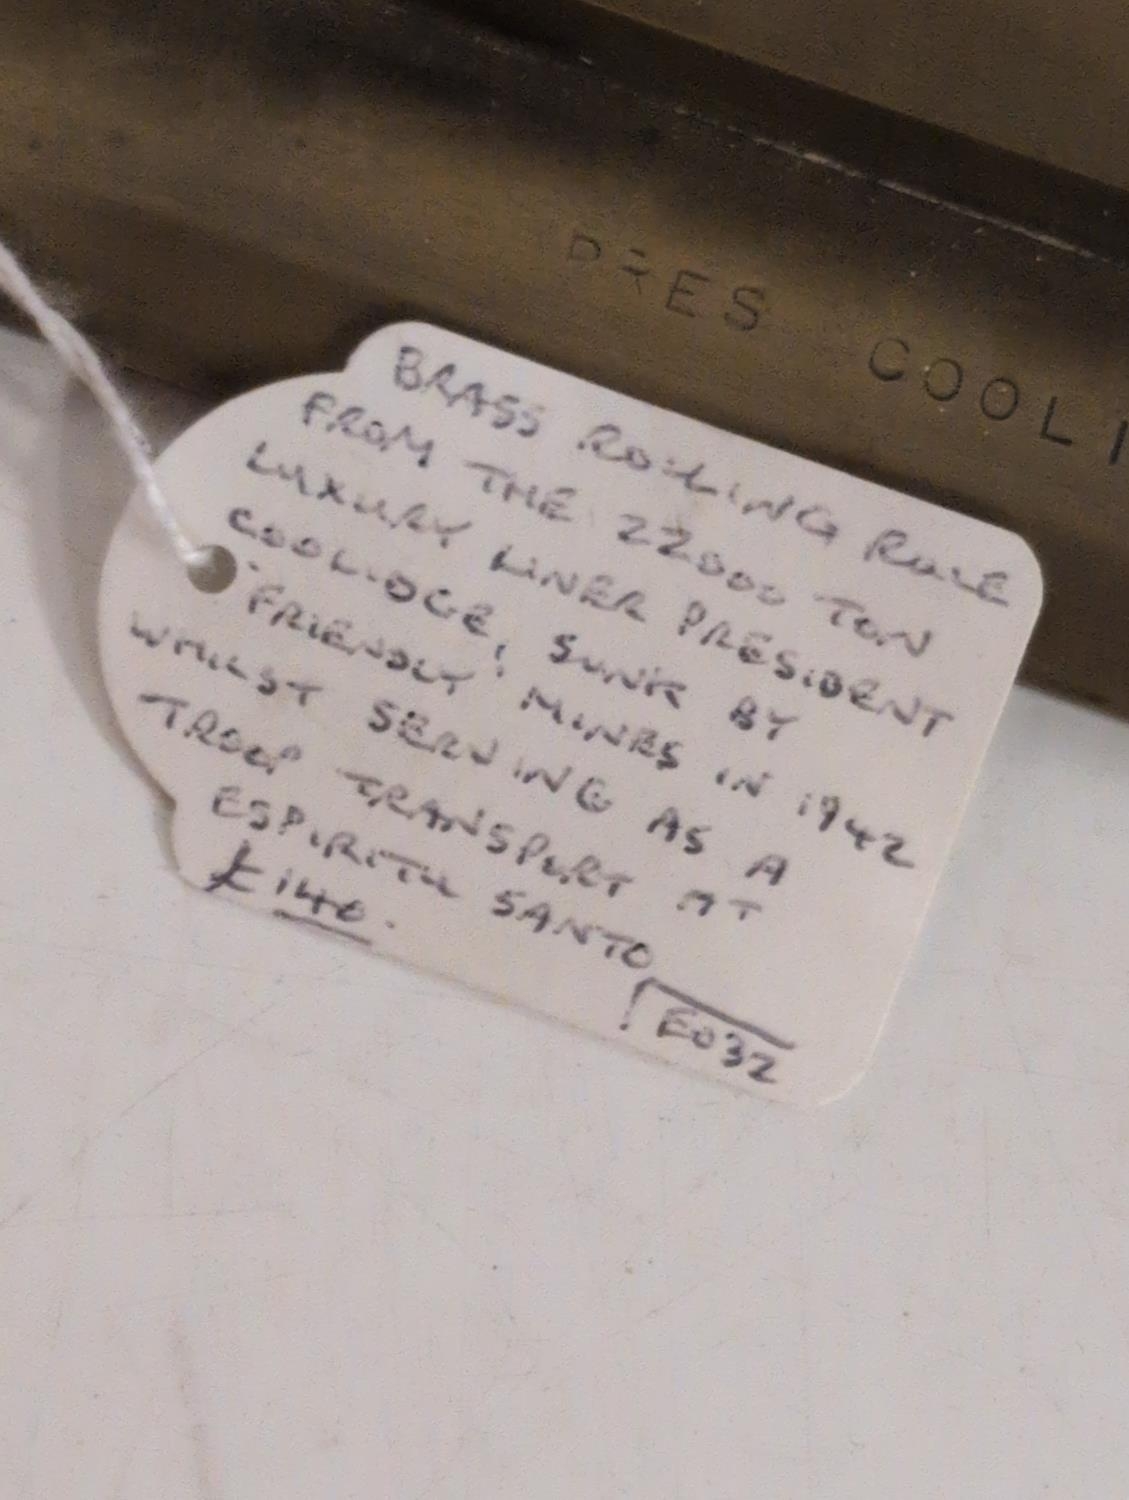 PRES COOLI
BRASS ROLLING RULE
FROM THE 22000 TON
LUXURY LINER PRESIDENT
COOLIDGE, SUNK BY
'FRIENDLY' MINES IN 1942
WHILST SERVING AS A
TROOP TRANSPORT AT
ESPIRITU SANTO
£140.
E032